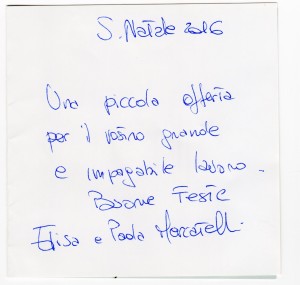 S. Natale 2016
Una piccola offerta
per il vostro grande
e impagabile lavoro.
Buone Feste
Elisa e Paola